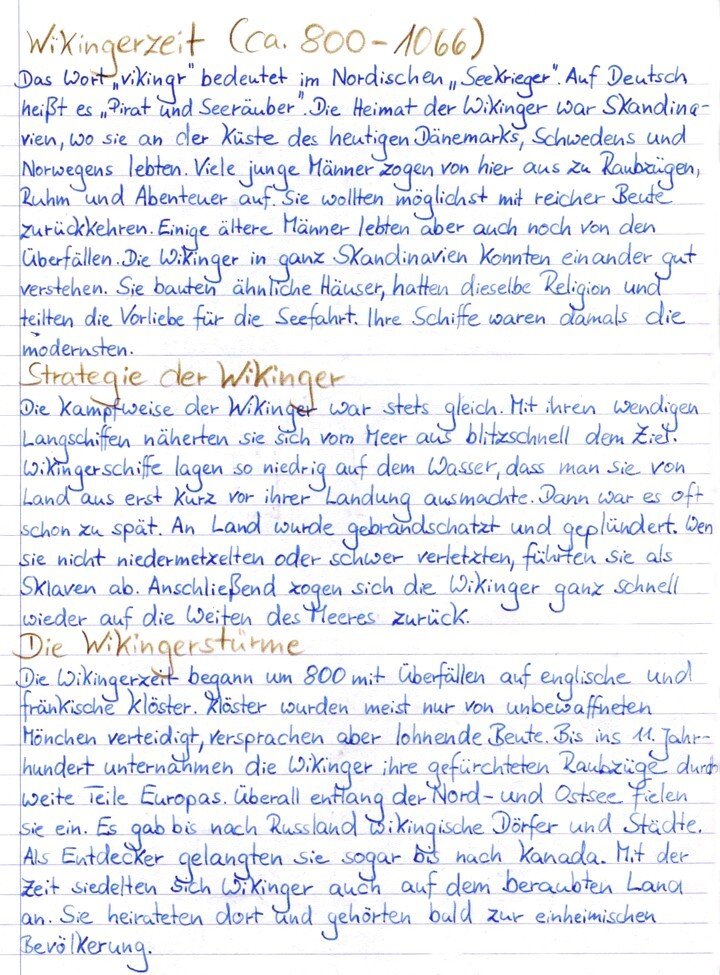 Wikingerzeit (ca. 800-1066)
Das Wort „vikingr" bedeutet im Nordischen „Seekrieger". Auf Deutsch
heißt es „Pirat und Seeräuber". Die Heimat der Wikinger war Skandina-
vien, wo sie an der Küste des heutigen Dänemarks, Schwedens und
Norwegens lebten. Viele junge Männer zogen von hier aus zu Raubzügen,
Ruhm und Abenteuer auf. Sie wollten möglichst mit reicher Beute
zurückkehren. Einige ältere Männer lebten aber auch noch von den
Überfällen. Die Wikinger in ganz Skandinavien konnten einander gut
verstehen. Sie bauten ähnliche Häuser, hatten dieselbe Religion und
teilten die Vorliebe für die Seefahrt. Ihre Schiffe waren damals die
modernsten.
Strategie der Wikinger
Die Kampfweise der Wikinger war stets gleich. Mit ihren wendigen
Langschiffen näherten sie sich vom Meer aus blitzschnell dem Ziel.
Wikingerschiffe lagen so niedrig auf dem Wasser, dass man sie von
Land aus erst kurz vor ihrer Landung ausmachte. Dann war es oft
schon zu spät. An Land wurde gebrandschatzt und geplündert. Wen
sie nicht niedermetzelten oder schwer verletzten, führten sie als
Sklaven ab. Anschließend zogen sich die Wikinger ganz schnell
wieder auf die Weiten des Meeres zurück.
Die Wikingerstürme
Die Wikingerzeit begann um 800 mit Überfällen auf englische und
fränkische Klöster. Klöster wurden meist nur von unbewaffneten
Mönchen verteidigt, versprachen aber lohnende Beute. Bis ins 11. Jahr-
hundert unternahmen die Wikinger ihre gefürchteten Raubzüge durch
weite Teile Europas. Überall entlang der Nord- und Ostsee fielen
sie ein. Es gab bis nach Russland wikingische Dörfer und Städte.
Als Entdecker gelangten sie sogar bis nach Kanada. Mit der
Zeit siedelten sich Wikinger auch auf dem beraubten Land
an. Sie heirateten dort und gehörten bald zur einheimischen
Bevölkerung.